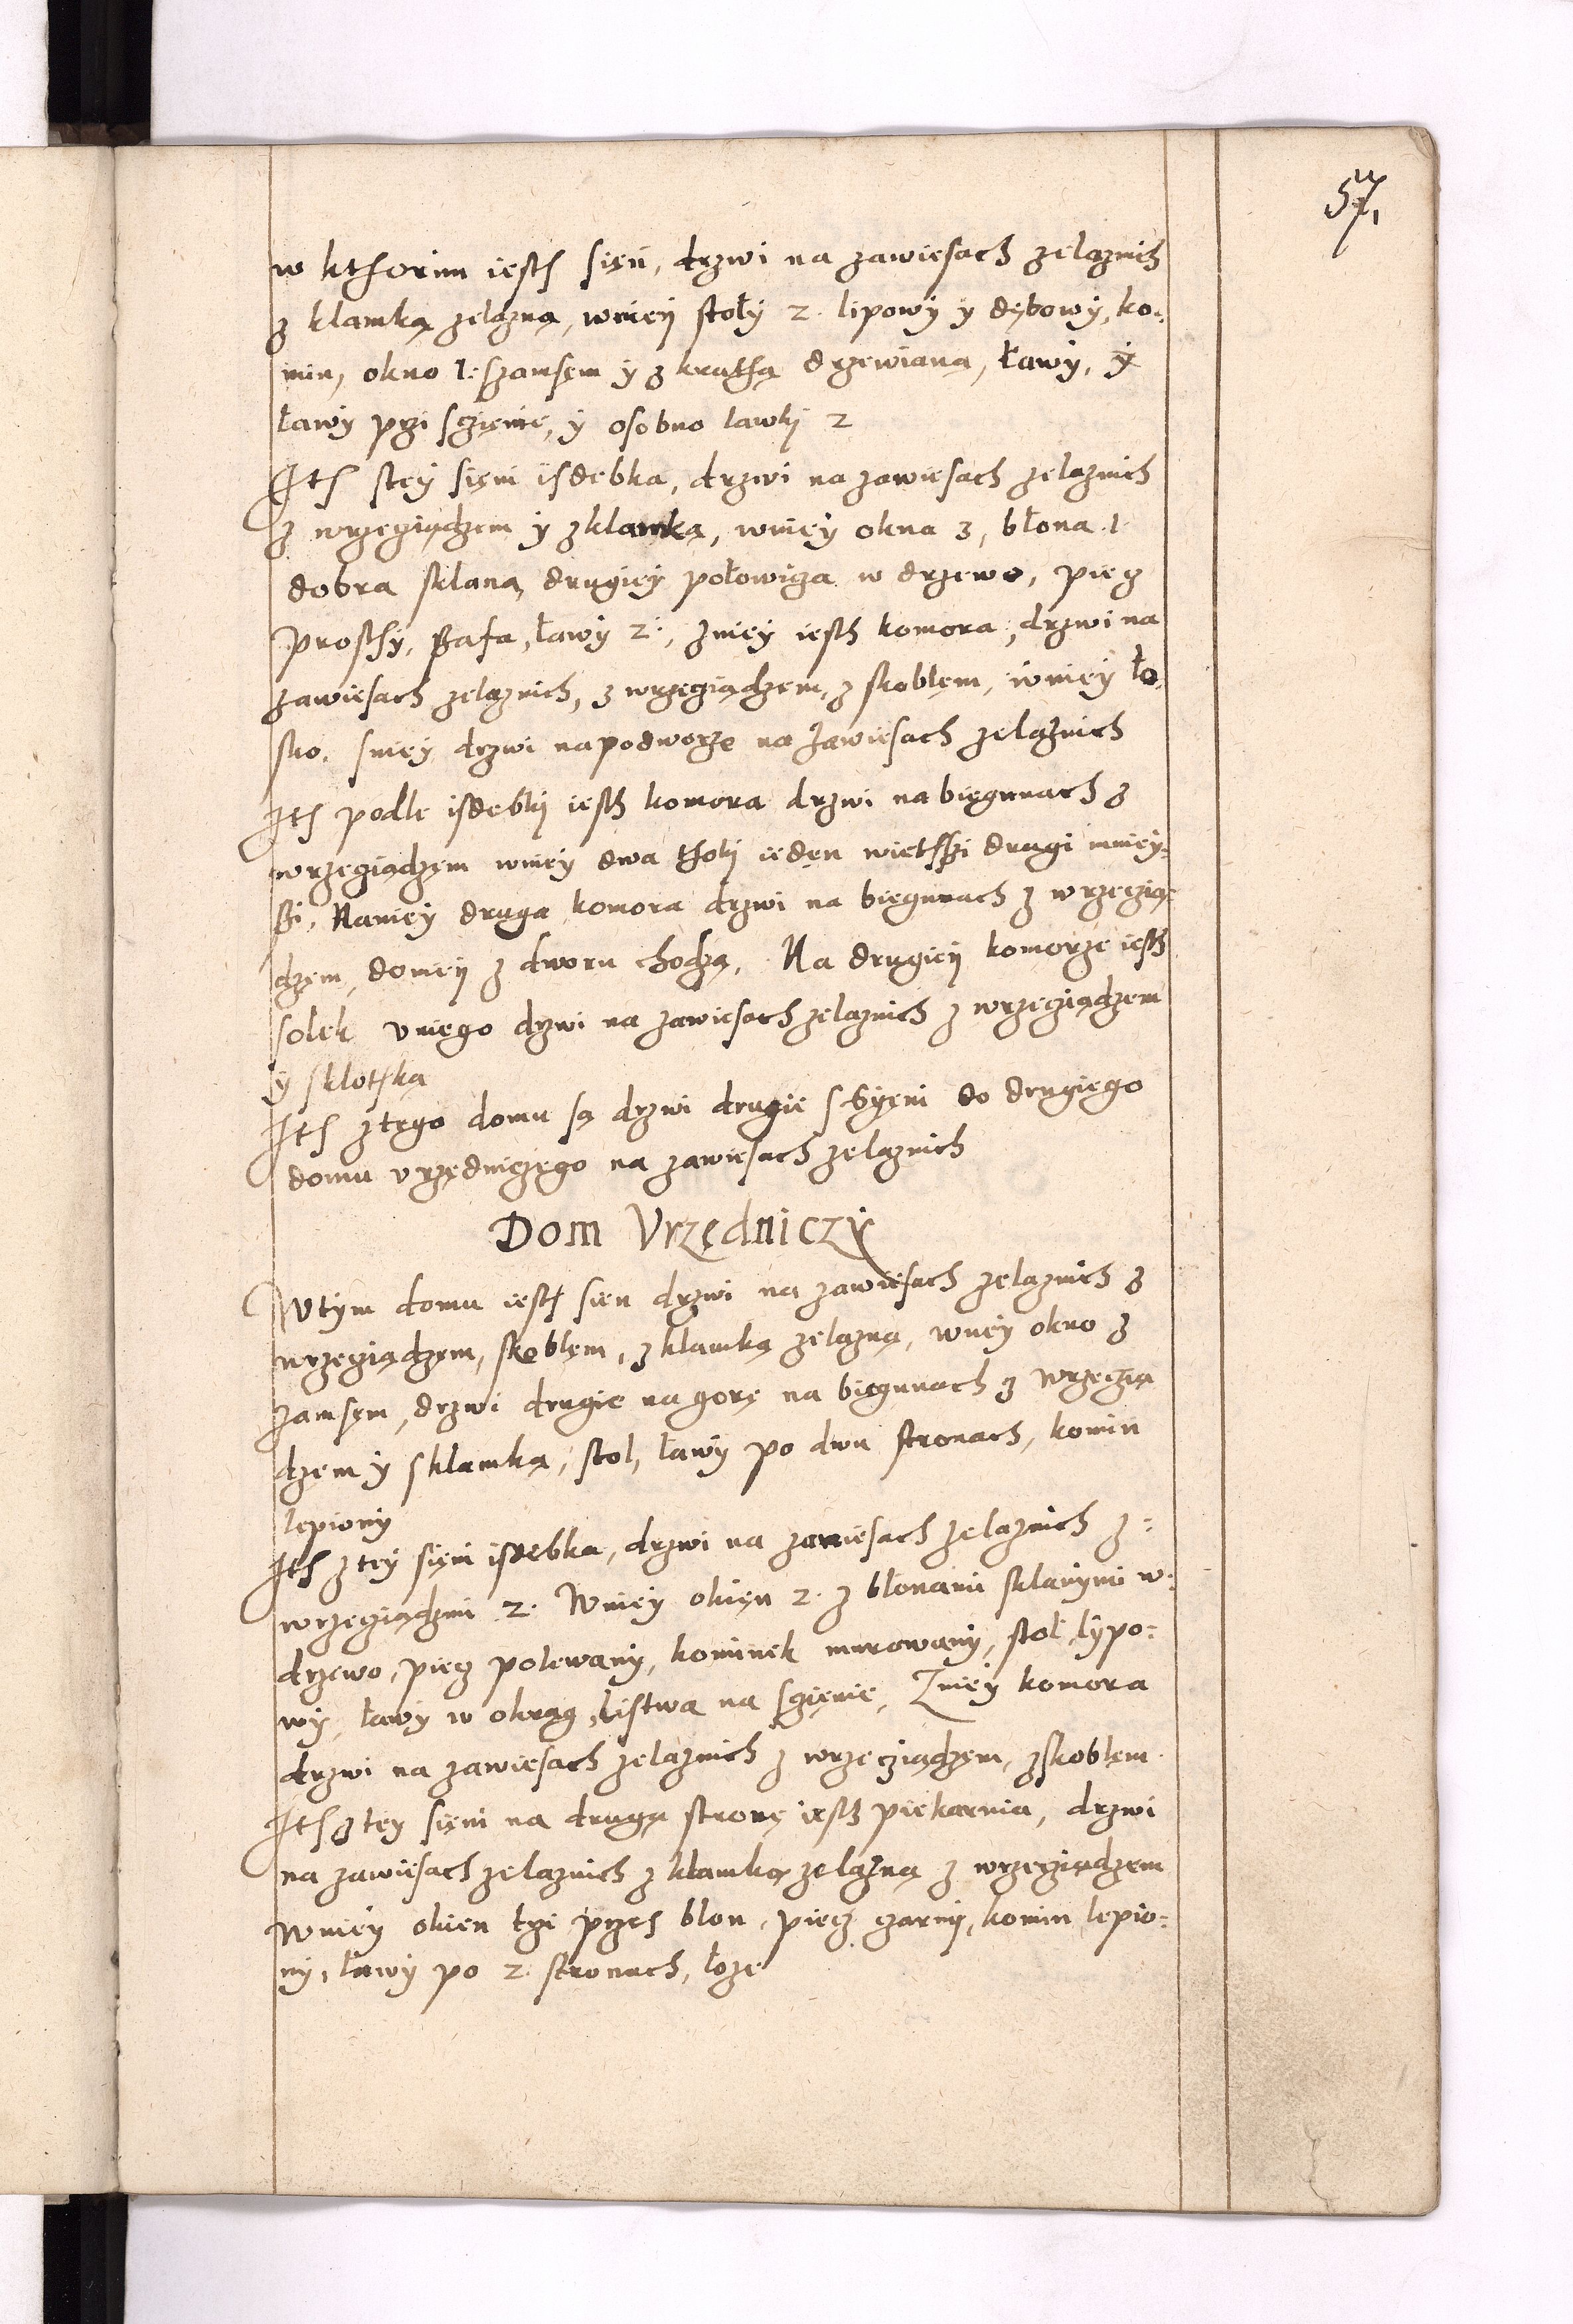 57
w kthorim iesth sięń, drzwi na zawiesach zelaznich
z klamką zelazną, wniey stoły 2. lipowy y dębowy, ko:
min, okno 1: szamsęm y z krathą drzewianą, ławy, y
ławy przi sczięnie, y osobno lawki 2
Ith stey sięni isdebka, drzwi na zawiesach zelaznich
z wrzecziądzem y z klamką, wniey okna 3, błona 1.
dobra sklana, drugiey połowicza w drzewo, piecz
prosthy, szafa, ławy 2:, zniey iesth komora, drzwi na
zawiesach zelaznich, z wrzecziądzem, z skoblem, wniey ło
sko. sniey drzwi na podworze na zawiesach zelaznich
Ith podle isdebki iesth komora drzwi na biegunach z
wrzecziądzem wniey dwa stholi iedęn wietszi drugi mniey:
szi, Naniey druga komora drzwi na biegunach z wrzeczią:
dzęm, doniey z dworu chodzą, Na drugiey komorze iesth
solek v niego drzwi na zawiesach zelaznich z wrzecziądzem
y sklotką
Ith z tego domu są drzwi drugie s syęni do drugiego
domu vrzędniczęgo na zawiesach zelaznich
Dom Vrzędniczy
W tym domu iesth sien drzwi na zawiesach zelaznich z
wrzecziądzem, skoblęm, z klamką zelazną, wniey okno z
zamsęm, drzwi drugie na gorę na biegunach z wrzeczią
dzem y sklamką, stol, ławy po dwu stronach, komin
lepiony
Ith z tey sięni isdebka, drzwi na zawiesach zelaznich z:
wrzecziądzmi 2. Wniey okięn 2. z błonami sklanymi w:
drzewo, piecz polewany, kominek murowany, stoł lypo:
wy, ławy w okrąg, listwa na sczięnie, Zniey komora
drzwi na zawiesach zelaznich z wrzecziądzęm, z skoblęm.
Ith z tey sięni na drugą stronę iesth piekarnia, drzwi
na zawiesach zelaznich z klamką zelazną z wrzecziądzem
Wniey okien trzi przes blon, piecz czarny, komin lepio:
ny, ławy po 2. stronach, łoze